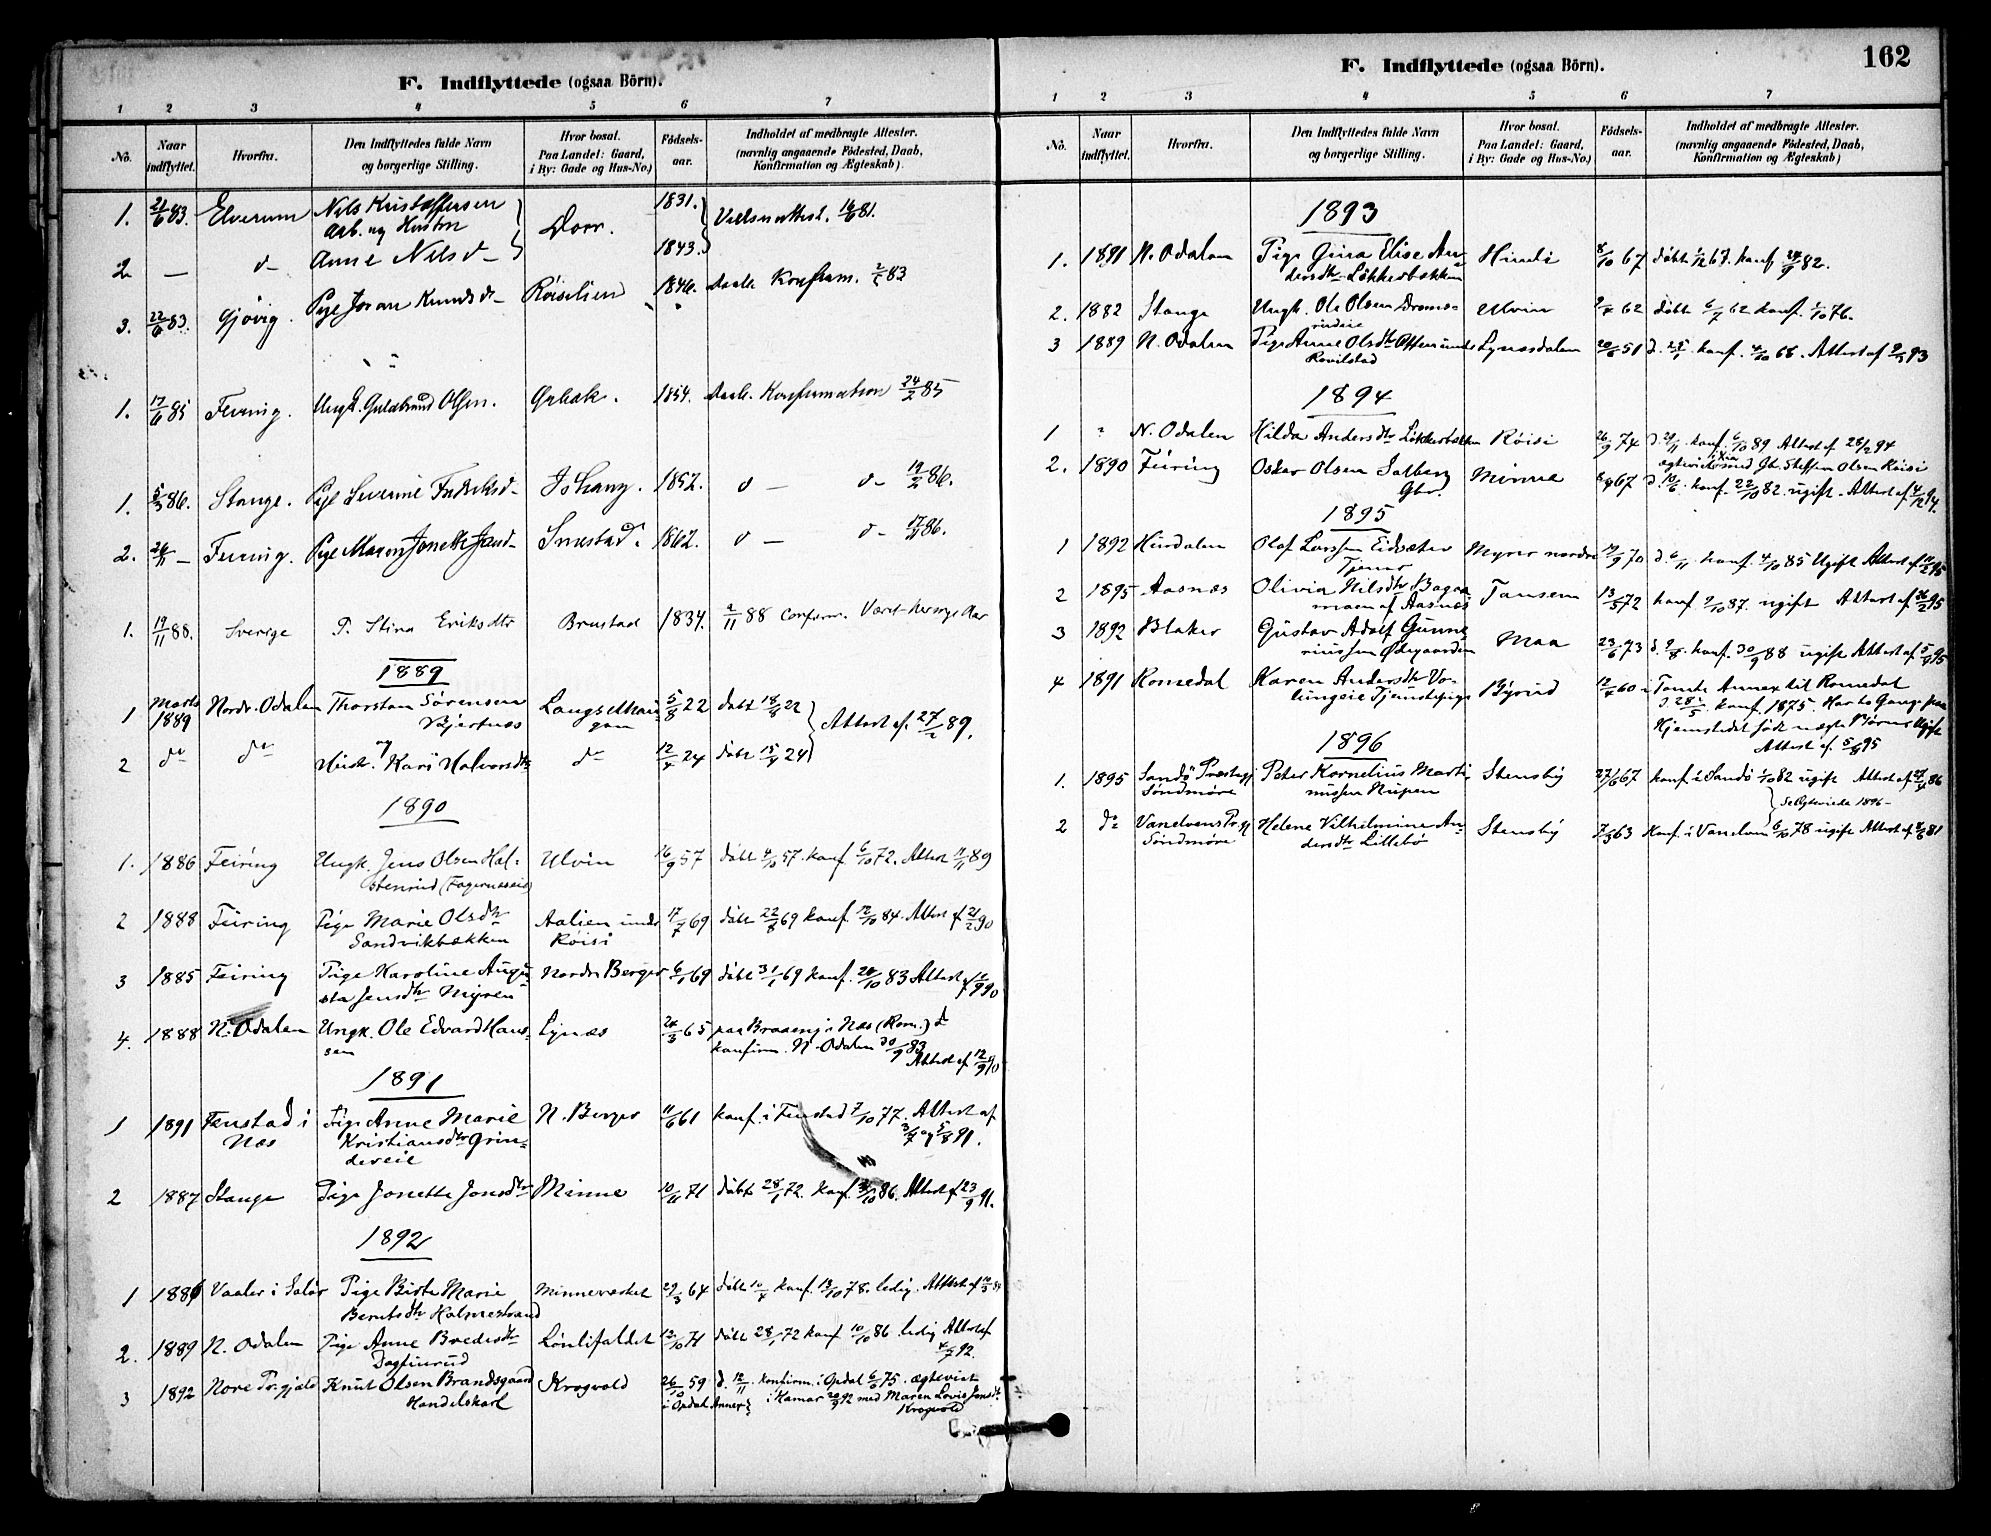 F. Indflyttede (ogsaa Börn).
1 2 3 4 5 6 7
No. Naar indflyttet. Hvorfra. Den Indflyttedes fulde Navn og borgerlige Stilling. Hvor bosat. Paa Landet: Gaard, i By: Gade og Hus-No.) Födsels-aar. Indholdet af medbragte Attester. (navnlig angaaende Födested, Daab, Konfirmation og Ægteskab).
1. 21/6 83. Elverum Nils Kristoffersen Dorr. 1831. 16/6 81.
Arb. og Hustru
2 — d- Anne Nilsd- 1843.
3. 22/6 83. Gjövig. Pige Joran Knudsd- Röiselien 1846. Daab. Konfirm. 83
1. 17/6 85 Feiring. Ungk. Guldbrand Olsen. 1854. Daab. Konfirmation 24/2 85
1. 5/3 86. Stange. Pige Severine Fredriksd- 1852. d — d- 19/2 86.
2. 26/11 — Feiring. Pige Maren Jonette 1862. d — d- 86.
1. 19/11 88. Sverige P. Stina Eriksdtr Brustad 1834. 2/11 88 confirm.
1889
1 Marts 1889 Nordr. Odalen Thorstan Sörensen 5/8 22 døbt 18/8 22 Attest af 27/2 89.
Bjertnæs
2 do do og Hustr. Kari Halvorsdtr do 12/4 24 døbt 15/4 24
1890
1. 1886 Feiring Ungk. Jens Olsen Hal- Ulvin 16/9 57 døbt 4/10 57. konf. 6/10 72. Attest 11/11 89
stenrud (Fagernæseie)
2 1888 Feiring Pige Marie Olsdtr Aalien under 17/7 69 døbt 22/8 69 konf. 12/10 84. Attest af 21/2 90
Sandvikbækken Röisi
3 1885 Feiring Pige Karoline Augu- Nordr Berger 6/1 69 døbt 31/1 69 konf. 28/10 83 Attest af 90
sta Jensdtr Myren
4. 1888 N. Odalen Ungk. Ole Edvard Hans- Lynæs 24/3 65 paa Braaeng i Næs (Rom.) d
sen konfirm. N. Odalen 30/9 83
Attest af 12/9 90
1891
1 1891 Fenstad i Pige Anne Marie N. Berger 11/6 61 konf. i Fenstad 7/10 77. Attest af
Næs Kristiansdtr Grin- 3/7 og 5/8 91.
deveie
2 1887 Stange Pige Jonette Jonsdtr Minne 10/11 71 døbt 28/1 72. konf. 86. Attest af 23/9 91.
1892
1 1886 Vaaler i Solør Pige Birte Marie Minneværket 29/3 64 døbt 10/4 konf. 13/10 78. ledig. Attest af
Berntsdtr Holmestrand
2. 1889 N. Odalen Pige Anne Bredesdtr Lönlifaldet 12/10 71 døbt 28/1 72 konf 10/10 86 ledig Attest af
Dagfinrud 4/7 92.
3 1892 Nore Prgjæld Knut Olsen Brandsgaard Krogvold 26/10 59 d. 12/11 konfirm. i Opdal 6/6 75. ægteviet
Handelskarl i Opdal Annex i Hamar 20/9 92 med Maren Lovise Jensdtr
Krogvold
162
F. Indflyttede (ogsaa Börn).
1 2 3 4 5 6 7
No. Naar indflyttet. Hvorfra. Den Indflyttedes fulde Navn og borgerlige Stilling. Hvor bosat. Paa Landet: Gaard, i By: Gade og Hus-No.) Födsels-aar. Indholdet af medbragte Attester. (navnlig angaaende Födested, Daab, Konfirmation og Ægteskab)
1893
1. 1891 N. Odalen Pige Gina Elise An- 8/10 67 døbt 1/12 67. konf 24/9 82.
dersdtr Lökkerbækken
2. 1882 Stange Ungk. Ole Olsen Ulvin 2/4 62 døbt 6/7 62 konf. 1/10 76.
3 1889 N. Odalen Pige Anne Olsdtr Lynæsdalen 20/6 51 d. konf. 4/10 68. Attest af 93
Rovilstad
1894
1 " N. Odalen Hilda Andersdtr Lökkerbækken Röisi 26/9 74 d. 29/11 konf. 6/10 89 Attest af 28/2 94
ægteviet med Steffen Olsen Röisi
2. 1890 Feiring Oskar Olsen Solberg Minne 67 d. 10/6 konf. 22/10 82. ugift. Attest af 4/12 94.
Gbr.
1895
1 1892 Hurdalen Olaf Larssen Eidsæter Myrer nordre 19/9 70 d. 6/11 konf. 4/10 85 Ugift Attest af 11/2 95
Tjener
2 1895 Aasnæs Olivia Nilsdtr Bagaa- Tansem 13/5 72 konf 9/10 87. ugift Attest af 26/2 95
moen af Aasnæs
3 1892 Blaker Gustav Adolf Gunne- Maa 23/6 73 d. 9/8. konf. 30/9 88 ugift Attest af 5/9 95
riussen Ödegaarden
4 1891 Romedal Karen Andersdtr Vo- Byrud 12/4 60 i Tomte Annex til Romedal
lungeie Tjenestepige d. 28/5 konf. 1875. Har to Gange paa
Hjemstedet født uægte Börn. Ugift
Attest af 5/9 95
1896
1. 1895 Sandö Præstegj Peter Kornelius Marti- Stensby 27/6 67 konf. i Sandö 1/10 82 ugift Attest af 27/4 86
Söndmöre nussen Nupen
Ægteviede 1896-
2 do Vanelvens Prgj Helene Vilhelmine An- Stensby 7/3 63 konf. i Vanelven 6/10 78 ugift Attest af 81
Söndmöre dersdtr Lillebö